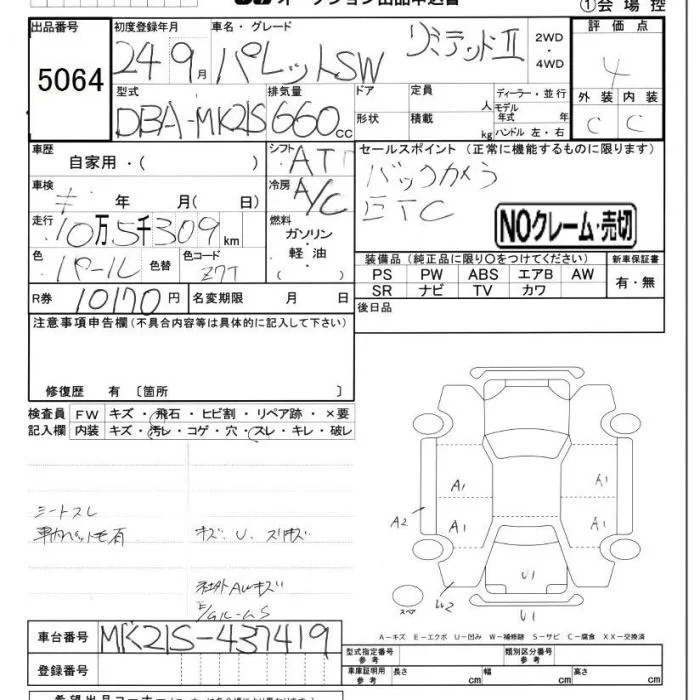 オークション出品申込書
①会場控
出品番号 初度登録年月 車名・グレード 評価点
5064 24 9月 パレットSW リミテッドⅡ 2WD・4WD 4
型式 排気量 ドア 定員 人 ディーラー・並行 外装 内装
DBA-MK21S 660cc 形状 積載 kg モデル年式 年 ハンドル 左・右 C C
車歴 自家用・( ) シフト AT セールスポイント (正常に機能するものに限ります)
車検 年 月( 日) 冷房 A/C バックカメラ
走行 10万5千309km 燃料 ETC
ガソリン・軽油・( ) NOクレーム・売切
色 パール 色替 色コード Z7T
装備品 (純正品に限り○をつけてください) 新車保証書
PS PW ABS エアB AW 有・無
SR ナビ TV カワ
R券 10170円 名変期限 月 日 後日品
注意事項申告欄 (不具合内容等は具体的に記入して下さい)
修復歴 有 〔箇所 〕
検査員 FW キズ・飛石・ヒビ割・リペア跡・×要
記入欄 内装 キズ・汚レ・コゲ・穴・スレ・キレ・破レ
シートスレ
車内ペット毛有 キズ、U、スリキズ
社外AWキズ
A1 A1
A2 A1 A1
U1
W2 U1
スペア
A－キズ E－エクボ U－凹み W－補修跡 S－サビ C－腐食 XX－交換済
車台番号 MK21S-437419
登録番号
型式指定番号 参考 類別区分番号 参考
車庫証明用 参考 長さ cm 幅 cm 高さ cm
希望出品コーナー